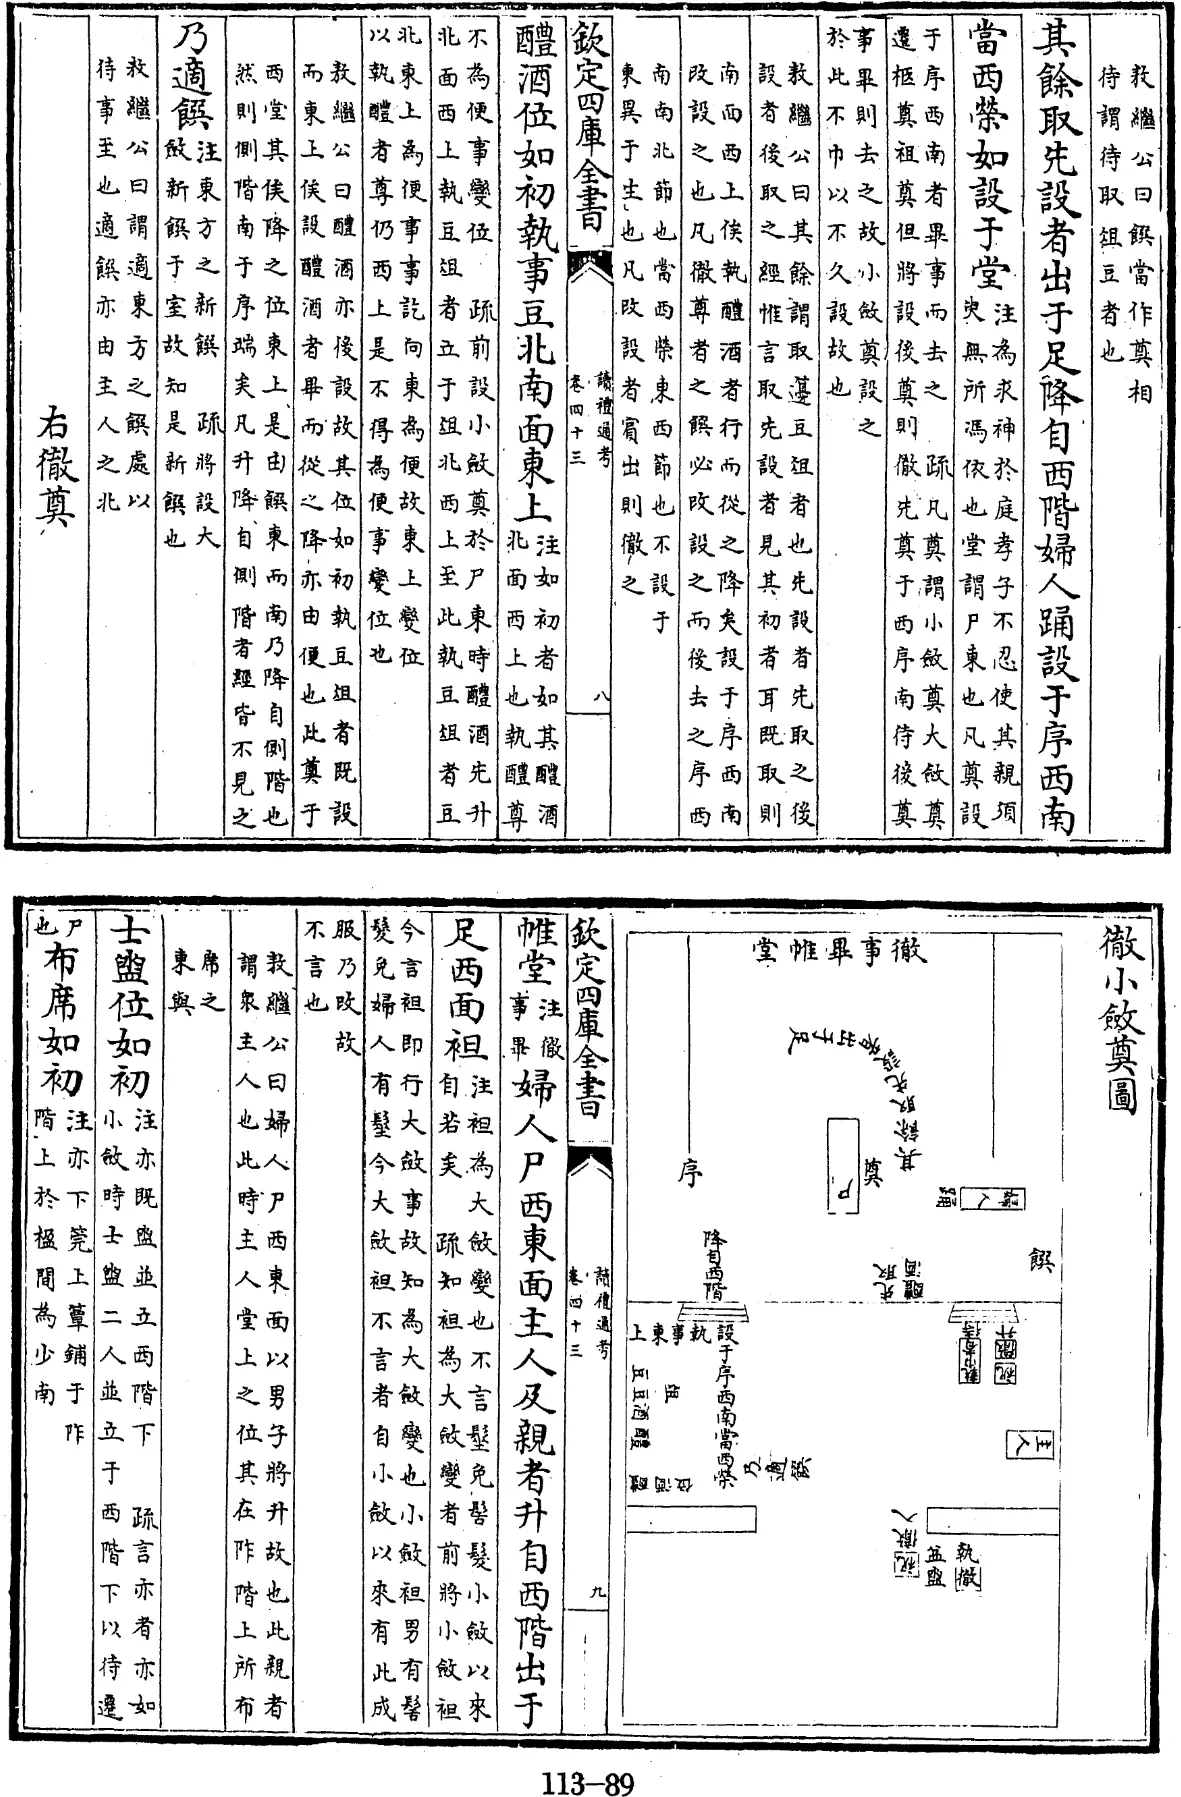 敖繼公曰饌當作奠相
待謂待取俎豆者也
其餘取先設者出于足降自西階婦人踊設于序西南
當西榮如設于堂注為求神於庭孝子不忍使其親須
臾無所馮依也堂謂尸東也凡奠設
于序西南者畢事而去之 疏凡奠謂小斂奠大斂奠
遷柩奠祖奠但將設後奠則徹先奠于西序南待後奠
事畢則去之故小斂奠設之
於此不巾以不久設故也
敖繼公曰其餘謂取籩豆俎者也先設者先取之後
設者後取之經惟言取先設者見其初者耳既取則
南而西上俟執醴酒者行而從之降矣設于序西南
改設之也凡徹尊者之饌必改設之而後去之序西
南南北節也當西榮東西節也不設于
東異于生也凡改設者賓出則徹之
欽定四庫全書
讀禮通考
卷四十三
八
醴酒位如初執事豆北南面東上注如初者如其醴酒
北面西上也執醴尊
不為便事變位 疏前設小斂奠於尸東時醴酒先升
北面西上執豆俎者立于俎北西上至此執豆俎者豆
北東上為便事事訖向東為便故東上變位
以執醴者尊仍西上是不得為便事變位也
敖繼公曰醴酒亦後設故其位如初執豆俎者既設
而東上俟設醴酒者畢而從之降亦由便也此奠于
西堂其俟降之位東上是由饌東而南乃降自側階也
然則側階南于序端矣凡升降自側階者經皆不見之
乃適饌注東方之新饌 疏將設大
斂新饌于室故知是新饌也
敖繼公曰謂適東方之饌處以
待事至也適饌亦由主人之北
右徹奠
徹小斂奠圖
徹事畢帷堂
其餘取先設者出于足
序
尸
奠
婦人
踊
饌
降自西階
醴酒
先取
執事東上
設于序西南當西榮
俎
豆豆酒醴
醴酒位
乃適饌
祝徹升
主人
徹入
祝
執徹
盆盥
欽定四庫全書
讀禮通考
卷四十三
九
帷堂注徹
事畢婦人尸西東面主人及親者升自西階出于
足西面袒注袒為大斂變也不言髽免髺髮小斂以來
自若矣 疏知袒為大斂變者前將小斂袒
今言袒即行大斂事故知為大斂變也小斂袒男有髺
髮免婦人有髽今大斂袒不言者自小斂以來有此成
服乃改故
不言也
敖繼公曰婦人尸西東面以男子將升故也此親者
謂衆主人也此時主人堂上之位其在阼階上所布
席之
東與
士盥位如初注亦既盥並立西階下 疏言亦者亦如
小斂時士盥二人並立于西階下以待遷
尸
也布席如初注亦下莞上簟鋪于阼
階上於楹間為少南
113-89